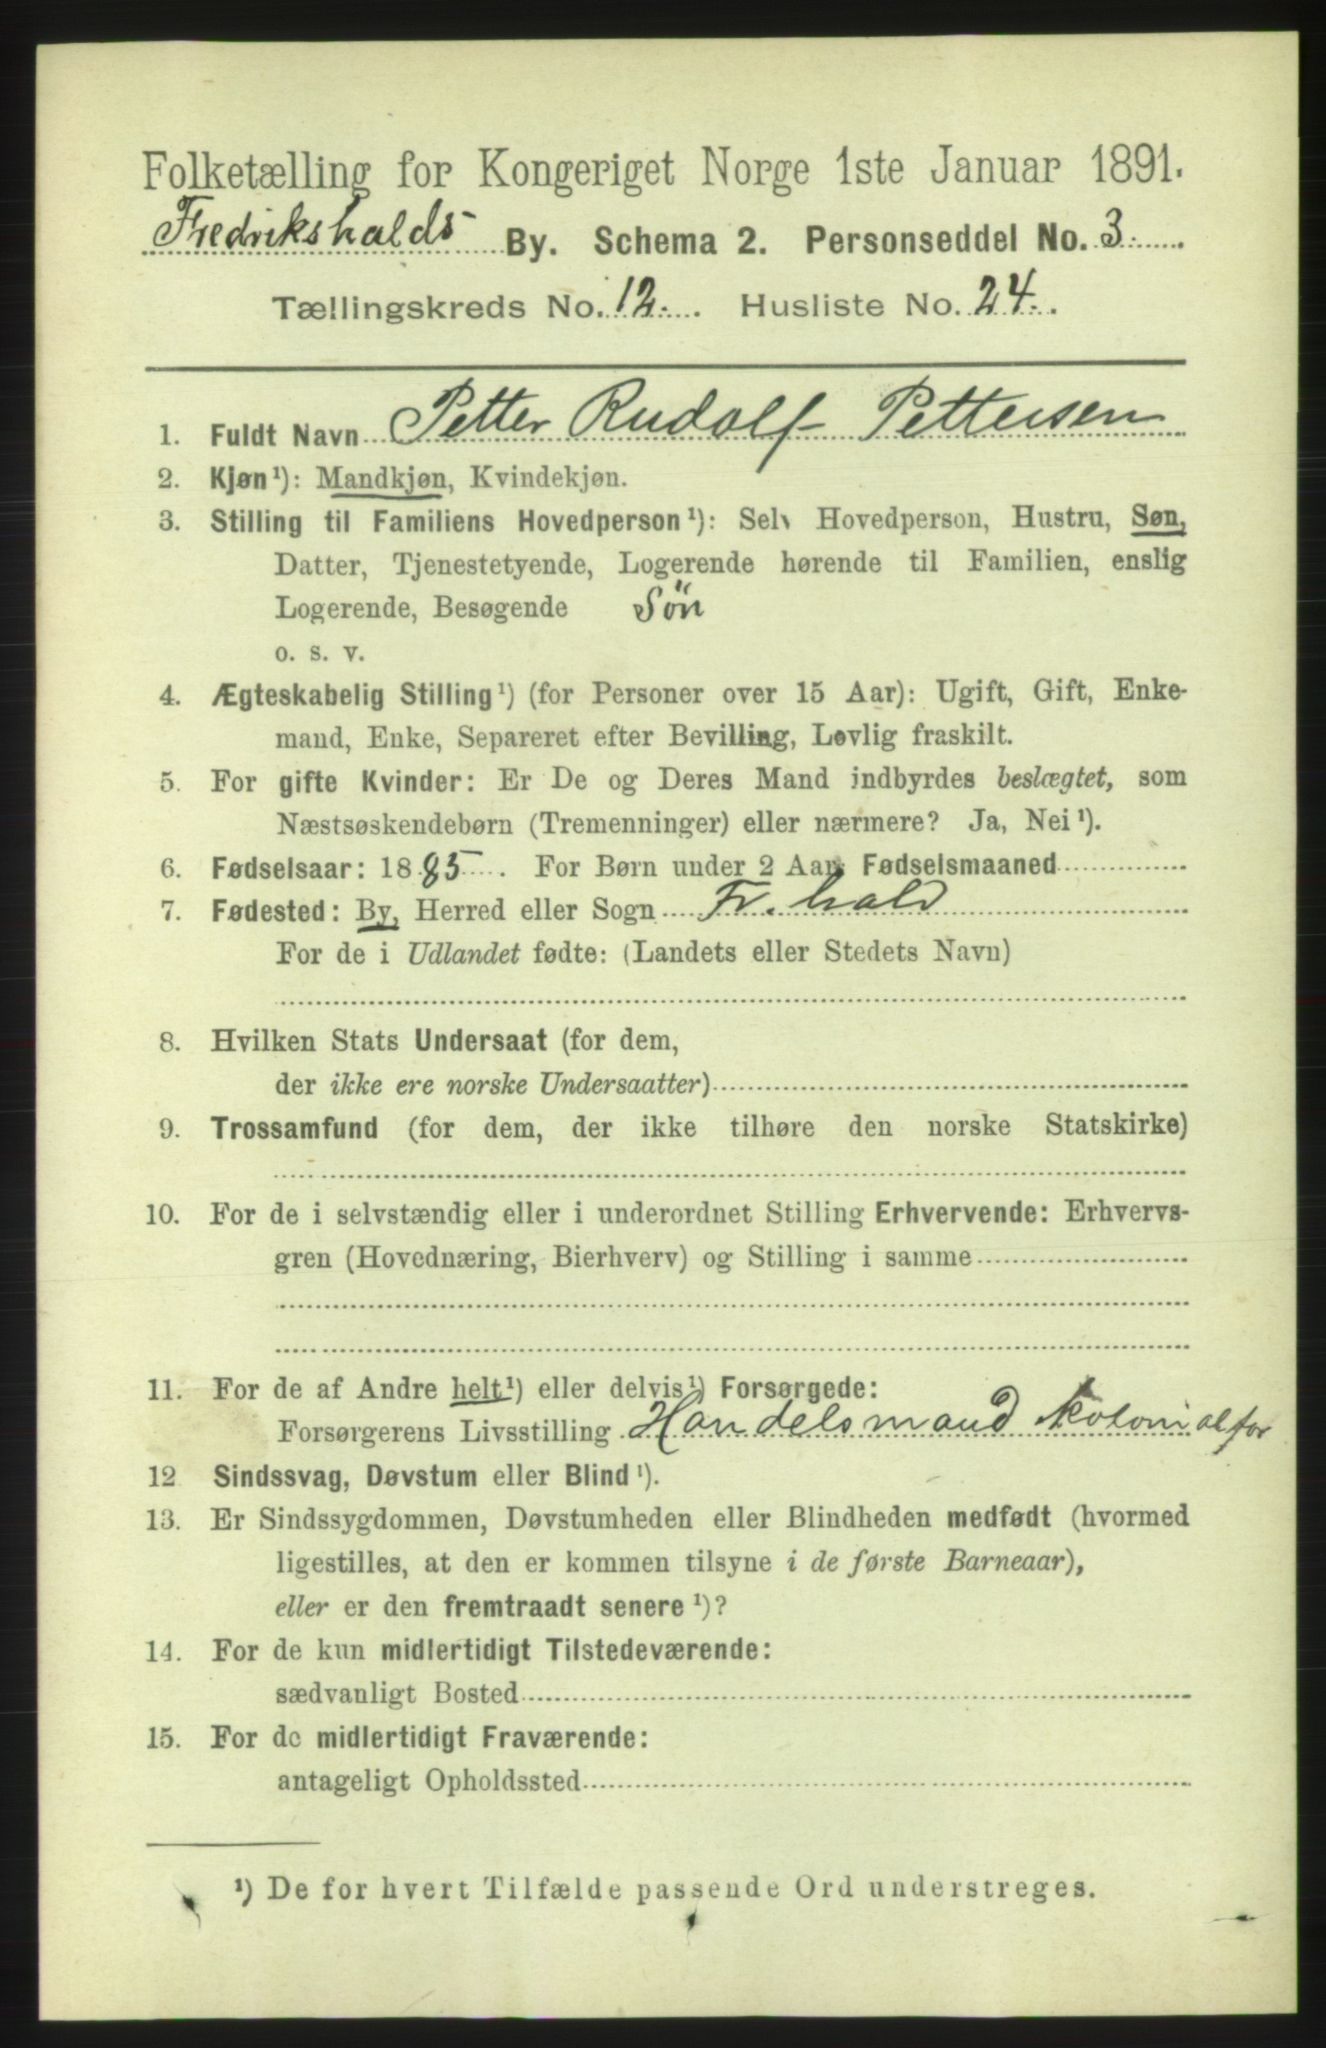 Folketælling for Kongeriget Norge 1ste Januar 1891.
Fredrikshalds By. Schema 2. Personseddel No. 3.
Tællingskreds No. 12. Husliste No. 24.
1. Fuldt Navn Petter Rudolf Pettersen
2. Kjøn¹): Mandkjøn, Kvindekjøn.
3. Stilling til Familiens Hovedperson¹): Selv Hovedperson, Hustru, Søn,
Datter, Tjenestetyende, Logerende hørende til Familien, enslig
Logerende, Besøgende Søn
o. s. v.
4. Ægteskabelig Stilling¹) (for Personer over 15 Aar): Ugift, Gift, Enke-
mand, Enke, Separeret efter Bevilling, Lovlig fraskilt.
5. For gifte Kvinder: Er De og Deres Mand indbyrdes beslægtet, som
Næstsøskendebørn (Tremenninger) eller nærmere? Ja, Nei¹).
6. Fødselsaar: 1885. For Børn under 2 Aar: Fødselsmaaned
7. Fødested: By, Herred eller Sogn Fr.hald
For de i Udlandet fødte: (Landets eller Stedets Navn)
8. Hvilken Stats Undersaat (for dem,
der ikke ere norske Undersaatter)
9. Trossamfund (for dem, der ikke tilhøre den norske Statskirke)
10. For de i selvstændig eller i underordnet Stilling Erhvervende: Erhvervs-
gren (Hovednæring, Bierhverv) og Stilling i samme
11. For de af Andre helt¹) eller delvis¹) Forsørgede:
Forsørgerens Livsstilling Handelsmand kolonialfor
12 Sindssvag, Døvstum eller Blind¹).
13. Er Sindssygdommen, Døvstumheden eller Blindheden medfødt (hvormed
ligestilles, at den er kommen tilsyne i de første Barneaar),
eller er den fremtraadt senere¹)?
14. For de kun midlertidigt Tilstedeværende:
sædvanligt Bosted
15. For de midlertidigt Fraværende:
antageligt Opholdssted
¹) De for hvert Tilfælde passende Ord understreges.